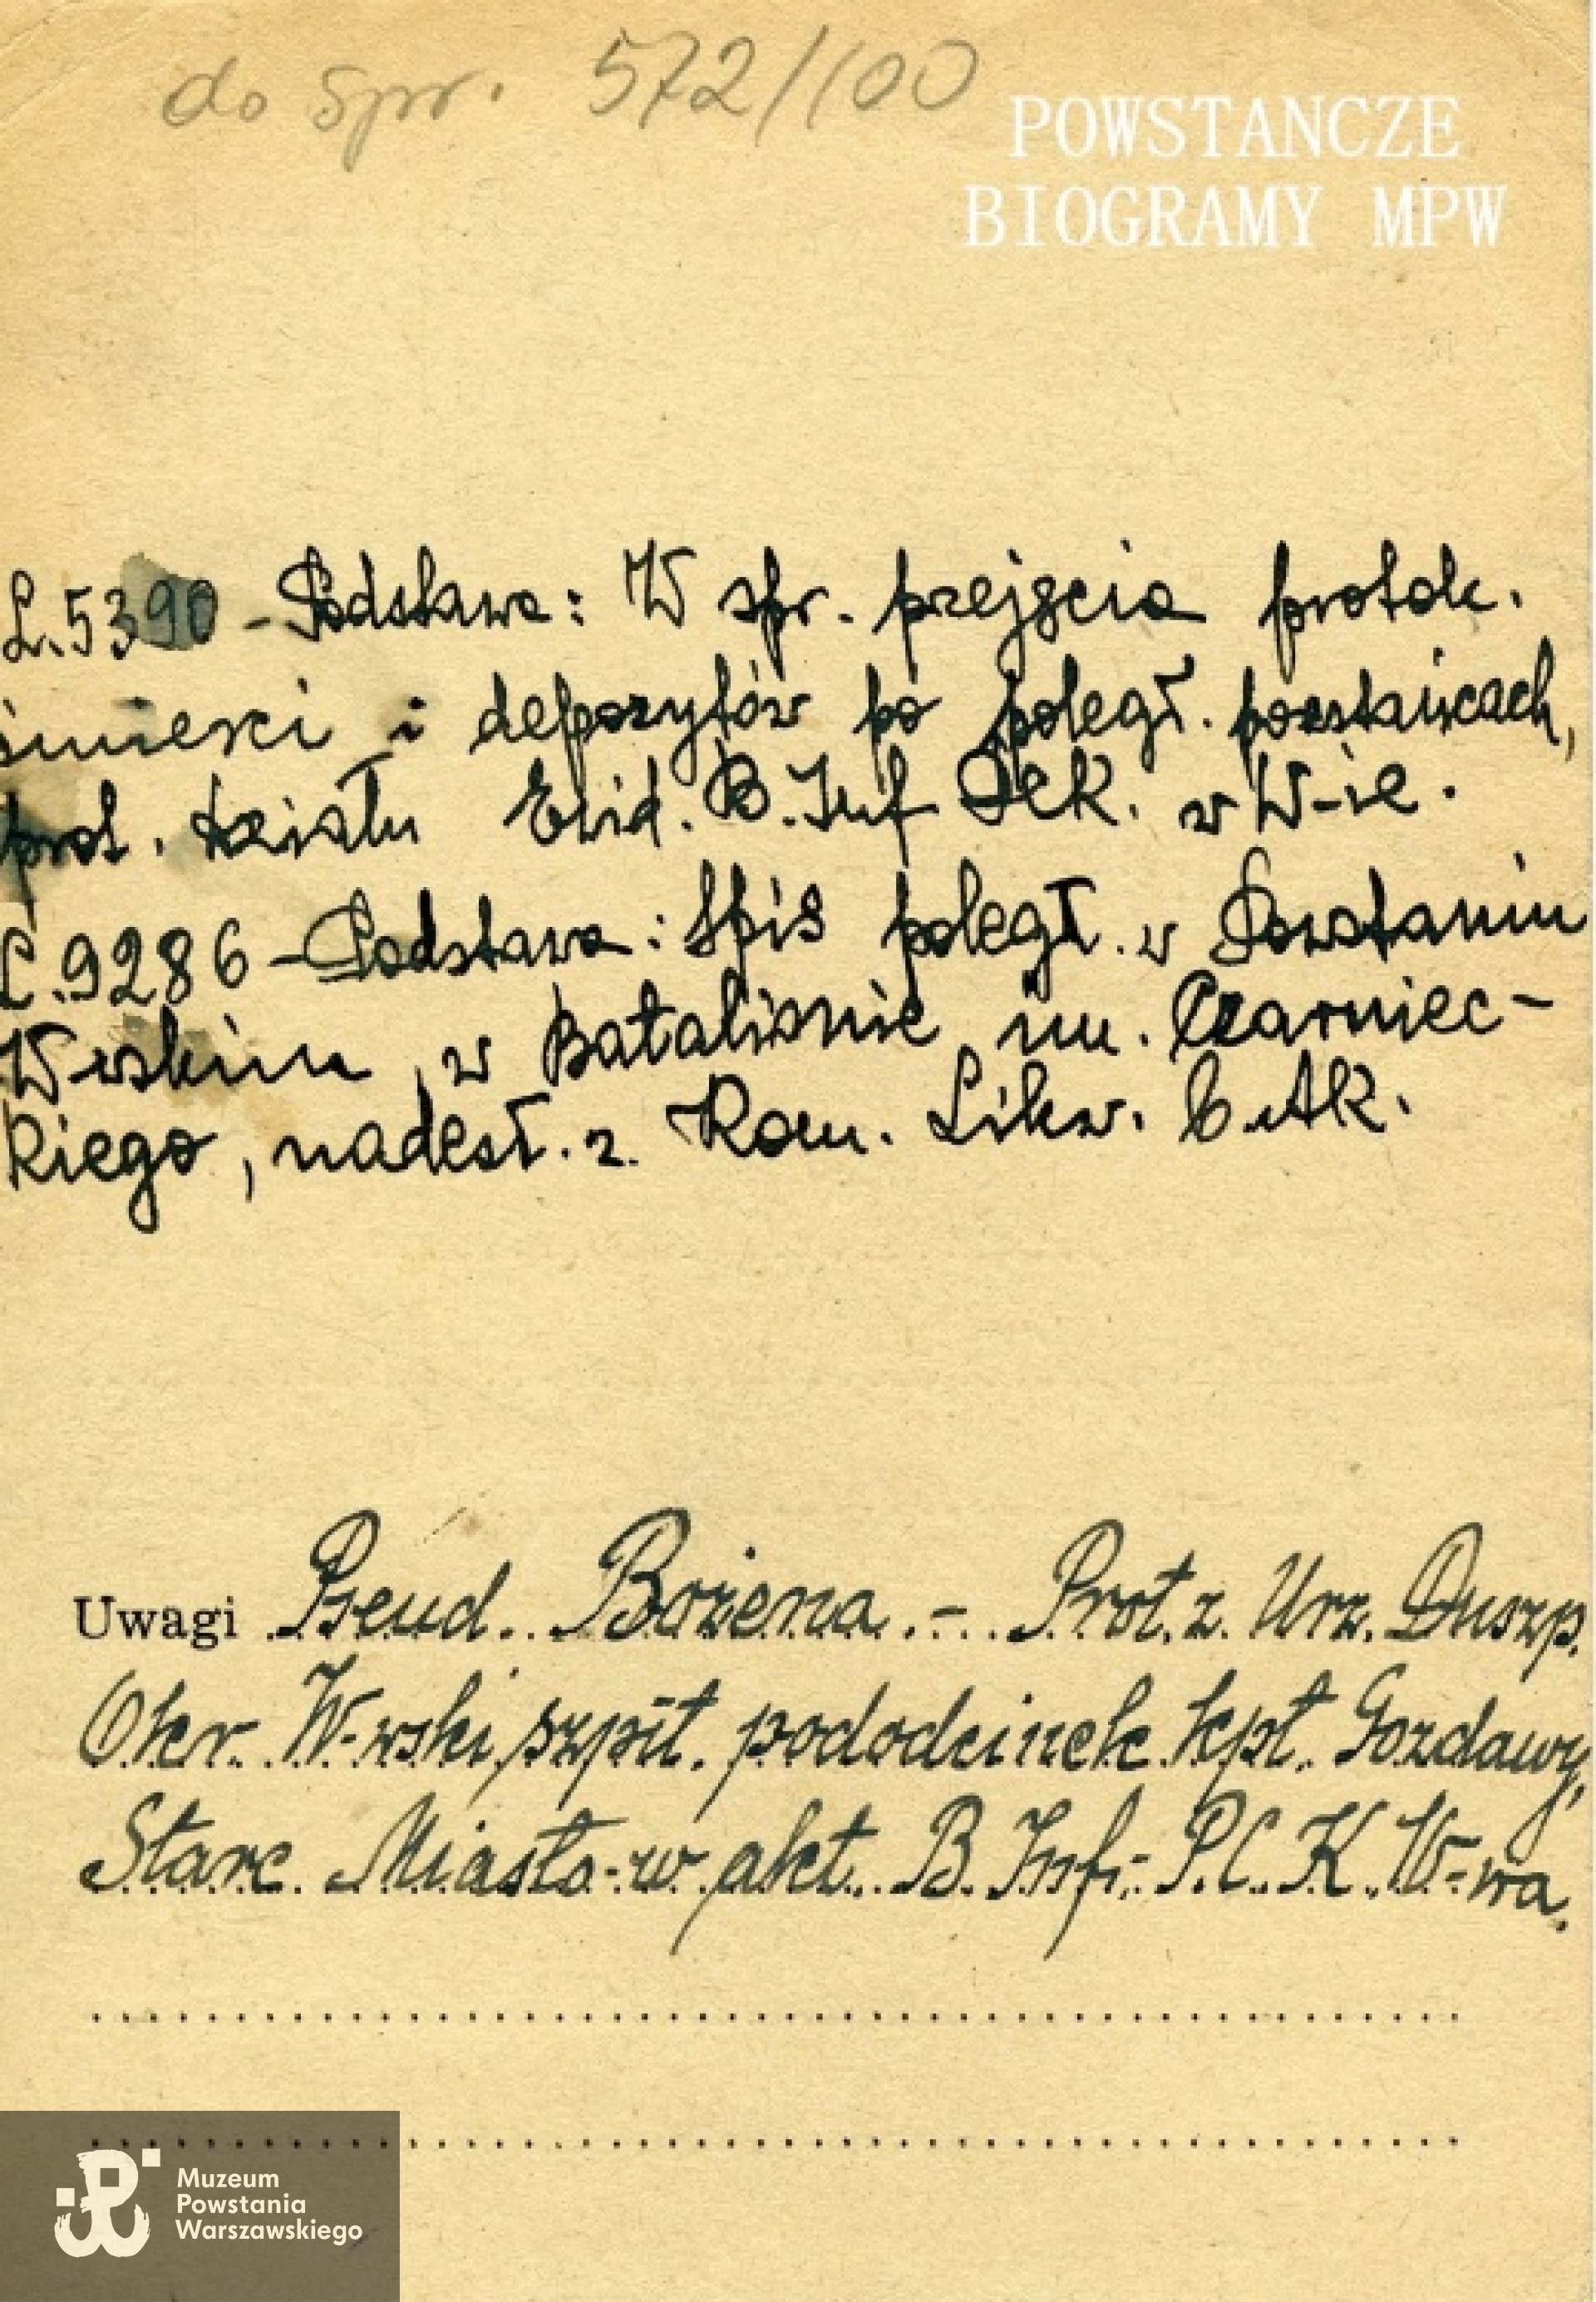 do spr. 572/100
POWSTANCZE
BIOGRAMY MPW
L. 5390 - Podstawa: W spr. przejęcia protok.
śmierci i depozytów po poległ. powstańcach,
prot. działu Ewid. B. Inf PCK. w W-ie.
L. 9286 - Podstawa: Spis poległ. w Powstaniu
W-wskim, w Batalionie im. Czarniec-
kiego, nadesł. z Kom. Likw. b. AK.
Uwagi Pseud. Bożena. - Prot. z. Urz. Duszp.
Okr. W-wski, szpit. pododcinek kpt. Gozdawy,
Stare Miasto - w akt. B. Inf. - P.C.K. W-wa.
Muzeum
Powstania
Warszawskiego